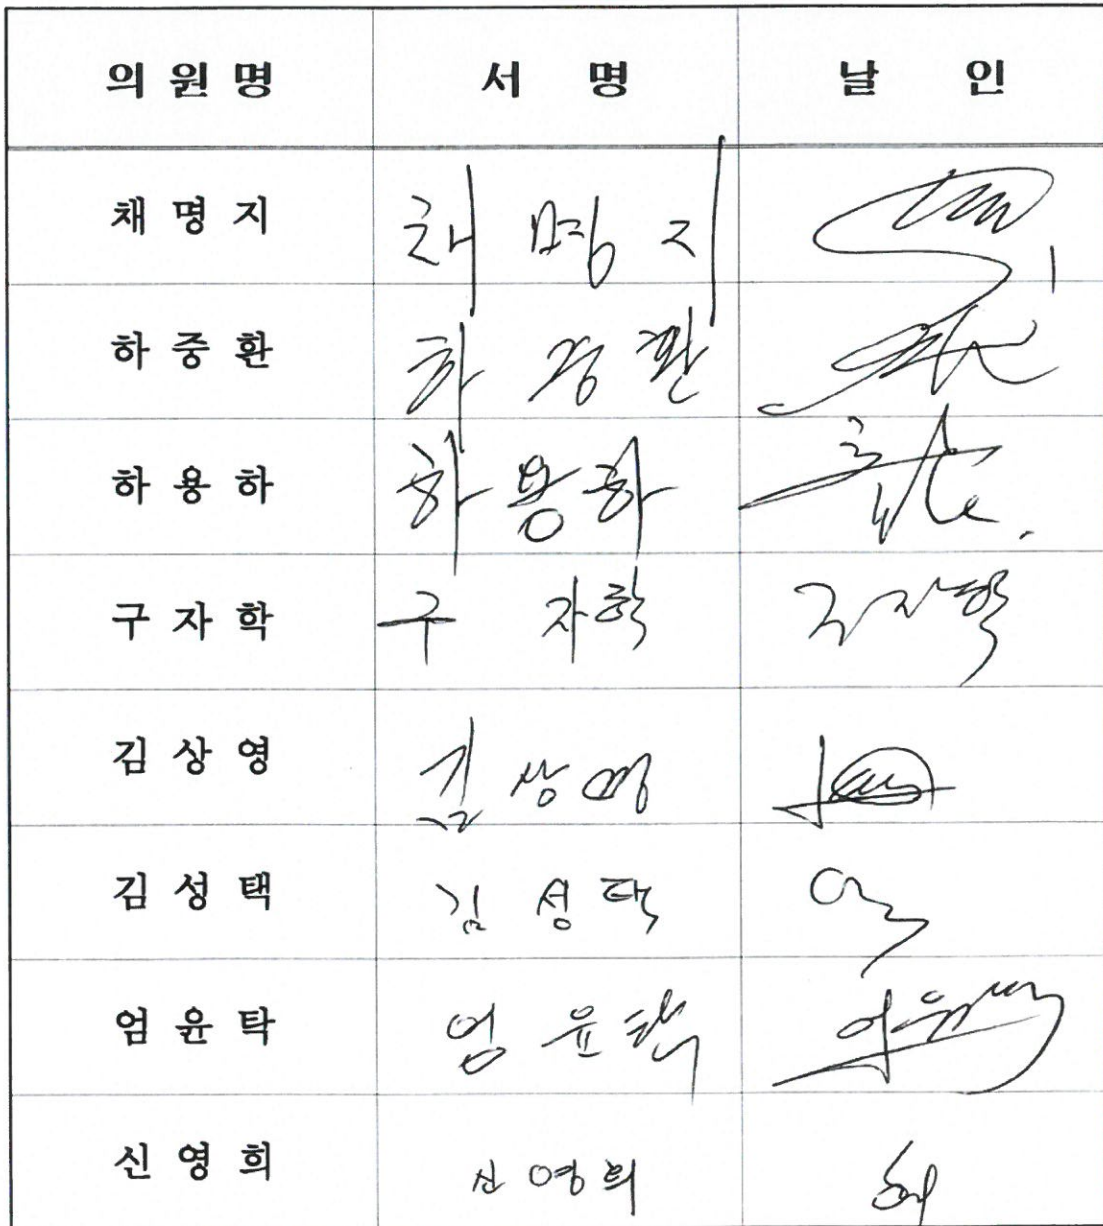 의 원 명 서 명 날 인
채 명 지 채 명 지
하 중 환 하 중 환
하 용 하 하 용 하
구 자 학 구 자학 구자학
김 상 영 김 상 영
김 성 택 김 성 택
엄 윤 탁 엄 윤 탁
신 영 희 신 영 희